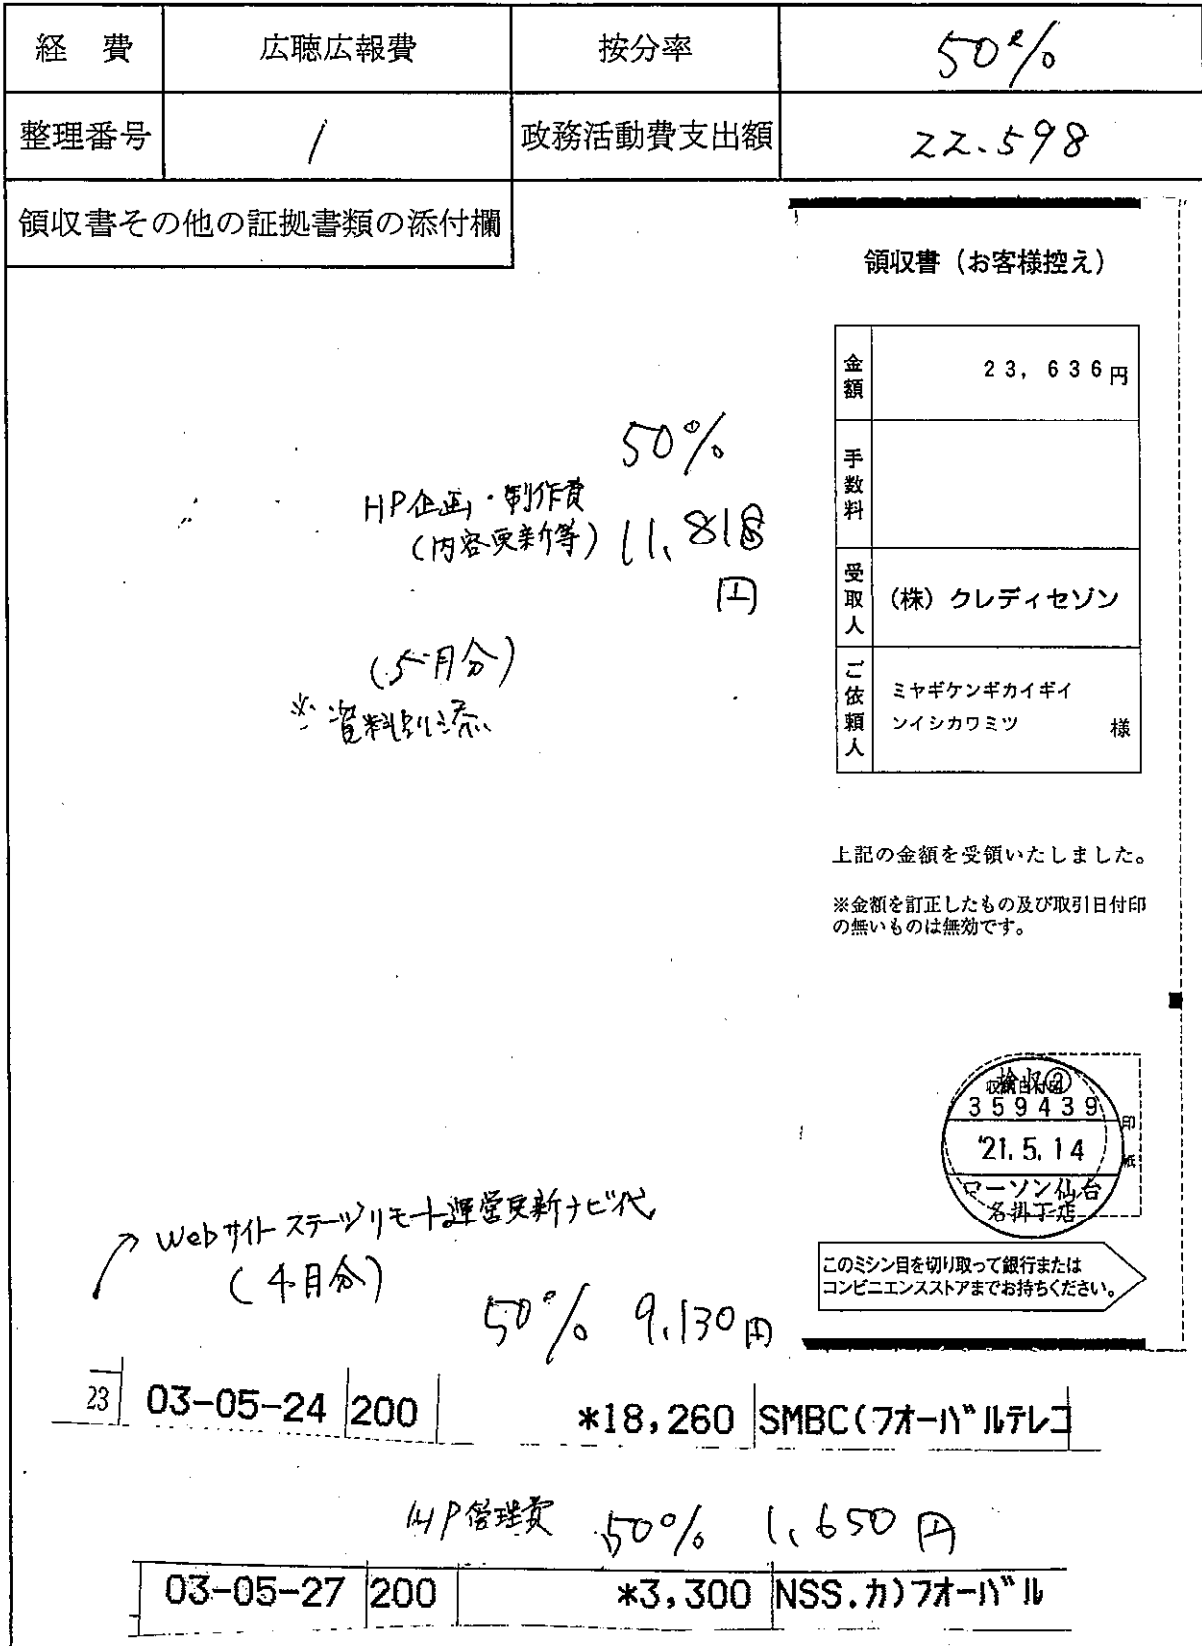 経 費 広聴広報費 按分率 50%
整理番号 1 政務活動費支出額 22.598
領収書その他の証拠書類の添付欄
領収書（お客様控え）
金額 23,636円
手数料
受取人 (株) クレディセゾン
ご依頼人 ミヤギケンギカイギイ
ンイシカワミツ 様
50%
HP企画・制作費
(内容更新等) 11,818
円
(5月分)
※資料別添
上記の金額を受領いたしました。
※金額を訂正したもの及び取引日付印
の無いものは無効です。
検収②
359439
'21.5.14
ローソン仙台
名掛丁店
印紙
このミシン目を切り取って銀行または
コンビニエンスストアまでお持ちください。
Webサイト ステーツリモート運営更新ナビ代
(4月分)
50% 9,130円
23 03-05-24 200 *18,260 SMBC(フオーバルテレコ
HP管理費 50% 1,650円
03-05-27 200 *3,300 NSS.カ)フオーバル